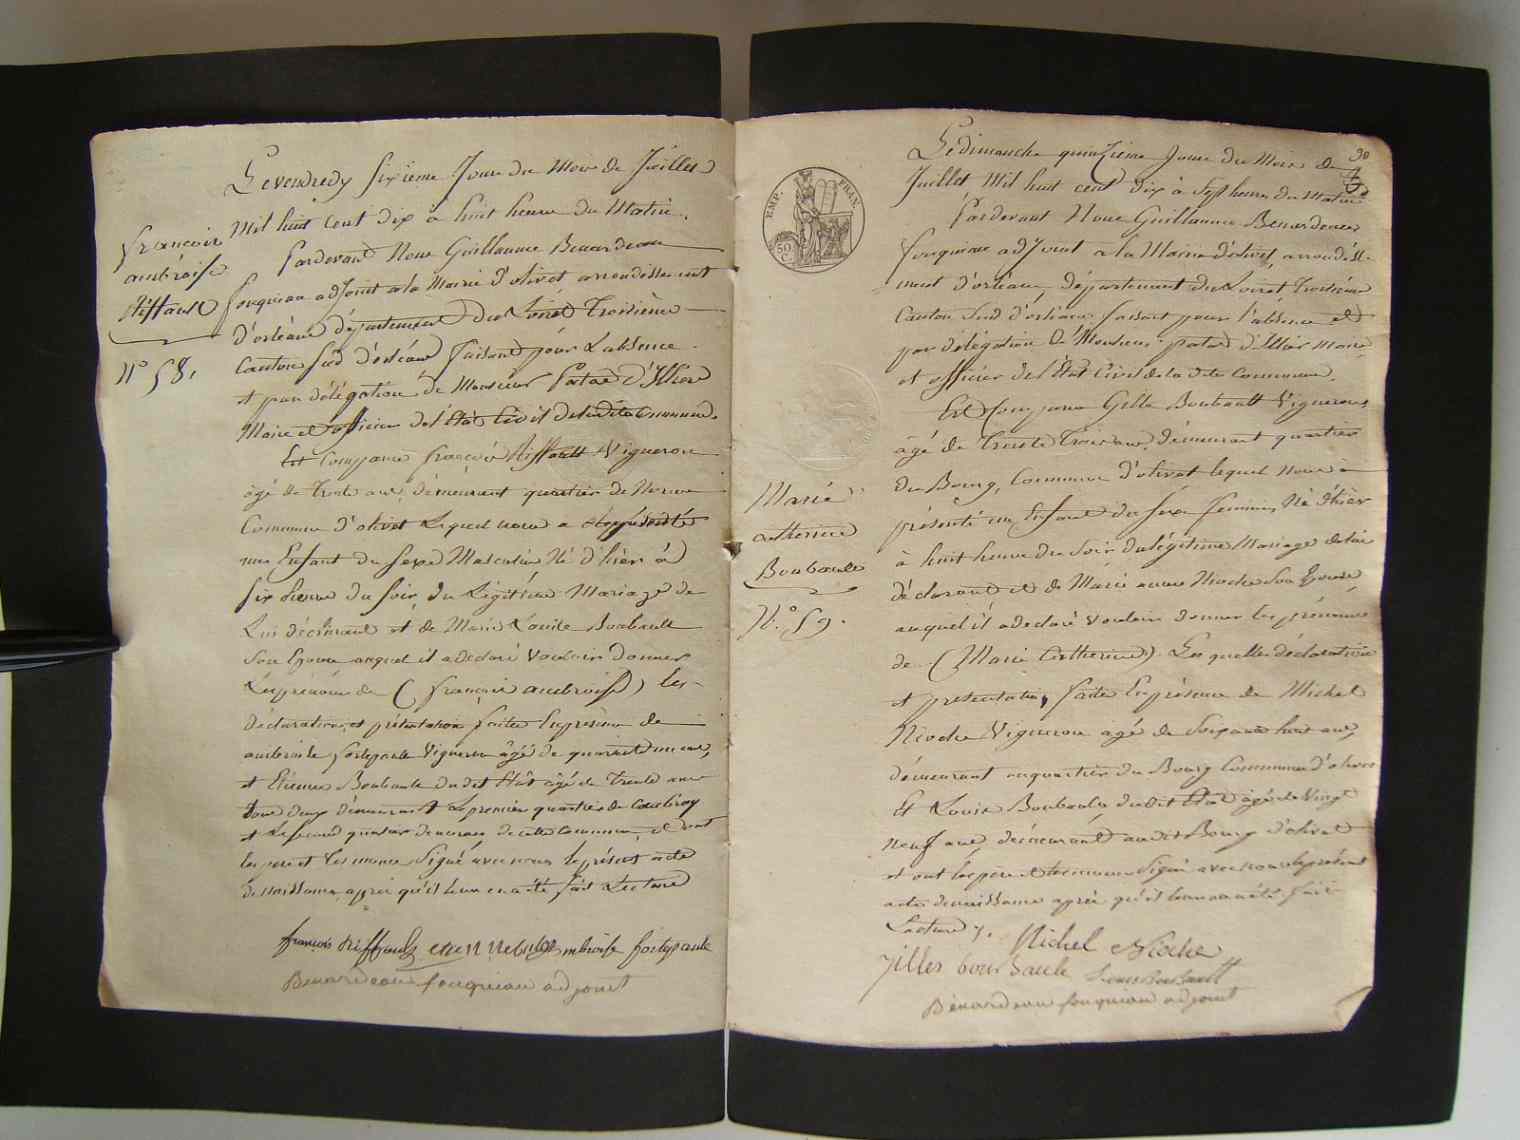 Le vendredy sixième Jour du Mois de Juillet
Mil huit Cent dix à huit heure du Matin.
françois
ambroise
Riffault
N° 58.
Pardevant Nous Guillaume Benardeau
fouqueau adjoint à la Mairie d'olivet arrondissement
d'orléans département du Loiret Troisième
Canton Sud d'orléans faisant pour L'absence
et par délégation de Monsieur Patas d'Illiers
Maire et officier de l'État Civil de la dite Commune.
Est Comparu françois Riffault Vigneron
âgé de Trente ans, demeurant quartier de
Commune d'olivet Lequel nous a présenté
un Enfant du Sexe Masculin Né d'hier à
Six heure du Soir, du Légitime Mariage de
Lui déclarant et de Marie Louise Boubault
Son Epouse auquel il a déclaré Vouloir Donner
Les prénom de (françois ambroise) les
déclaration et présentation faites En présence de
ambroise fortepaule Vigneron âgé de quarante un ans,
et Etienne Boubault du dit État âgé de Trente ans
tous deux demeurant Le premier quartier de
et Le Second quartier de cette Commune, et ont
les pere et témoins Signé avec nous le présent acte
de naissance après qu'il leur en a été fait Lecture
françois Riffault ambroise fortepaule
Benardeau fouqueau adjoint
30
EMP. FRAN.
50
C.
Le dimanche quinzième Jour du Mois de
Juillet Mil huit cent dix à Sept heure du Matin
Pardevant Nous Guillaume Benardeau
fouqueau adjoint a la Mairie d'olivet, arrondisse-
ment d'orléans, département du Loiret Troisième
Canton Sud d'orléans faisant pour l'absence et
par délégation de Monsieur patas d'Illiers Maire
et officier de l'État Civil de la dite Commune.
Est Comparu Gille Boubault Vigneron,
âgé de Trente Trois ans, demeurant quartier
du Bourg, Commune d'olivet lequel nous a
présenté un Enfant du Sexe féminin, Né d'hier
à huit heure du Soir, du légitime Mariage de lui
déclarant et de Marie anne Nioche Son Epouse
auquel il a déclaré vouloir donner les prénoms
de (Marie Catherine) Les quelles déclaration
et présentation, faites En présence de Michel
Nioche Vigneron agé de Soixante huit ans,
demeurant au quartier du Bourg Commune d'olivet
Et Louis Boubault, du dit État âgé de Vingt
neuf ans, demeurant au dit Bourg d'olivet
et ont les père et témoins Signé avec nous le présent
acte de naissance après qu'il leur en a été fait
Lecture
Marie
Catherine
Boubault
N.° 59.
Michel Nioche
jilles boubault Louis Boubault
Bénardeau fouqueau adjoint